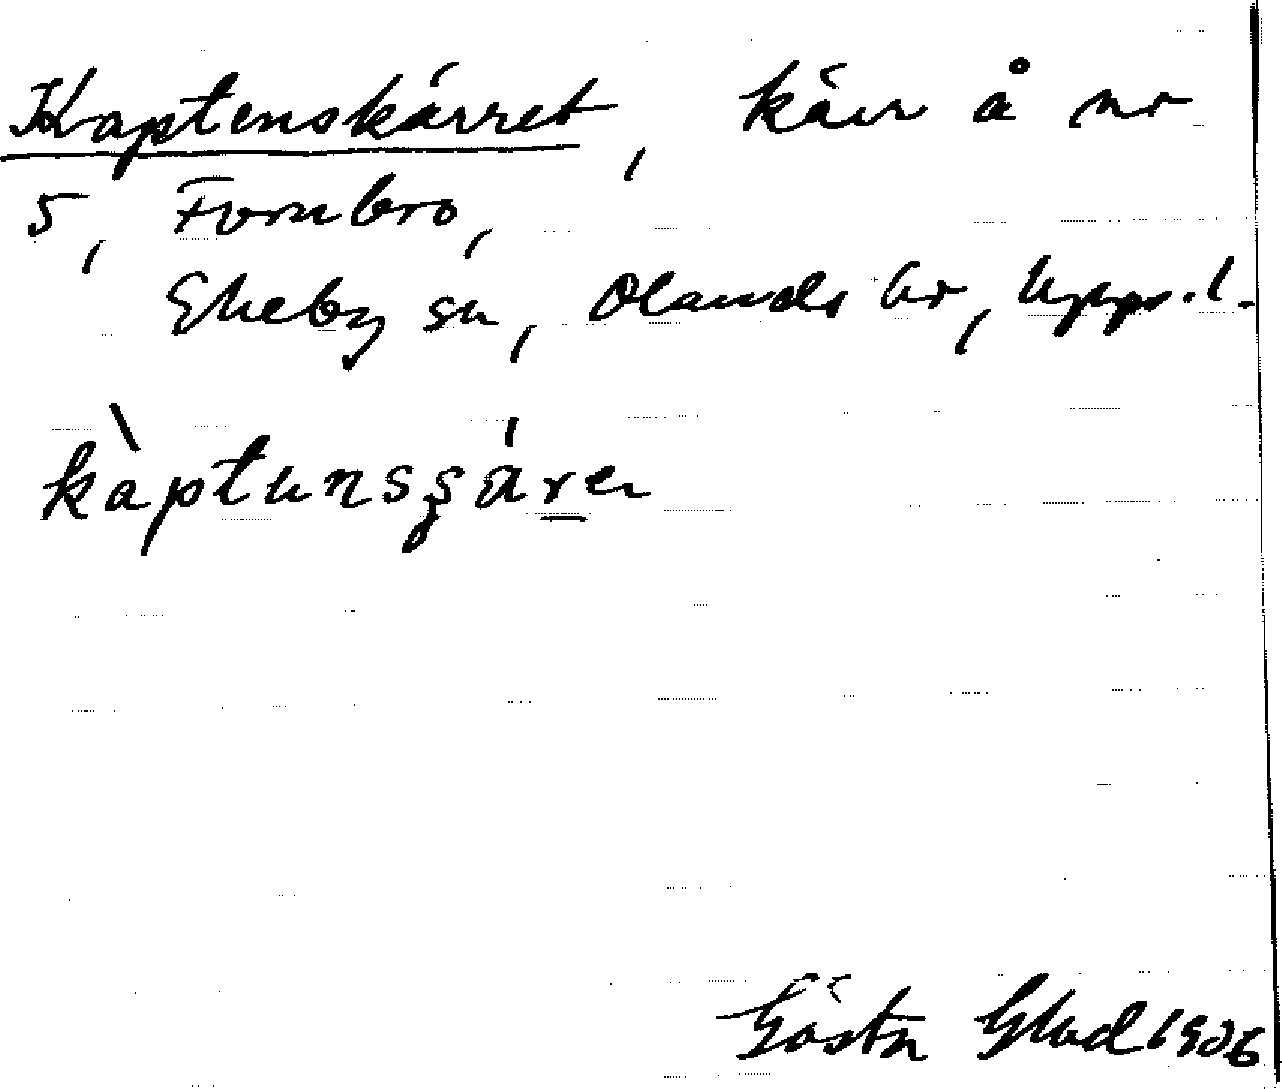 Kaptenskärret, kärr å nr
5, Fornbro,
Ekeby sn, Olands hr, Upps.l.
kàptunsʂárer
Gösta Glad 1906